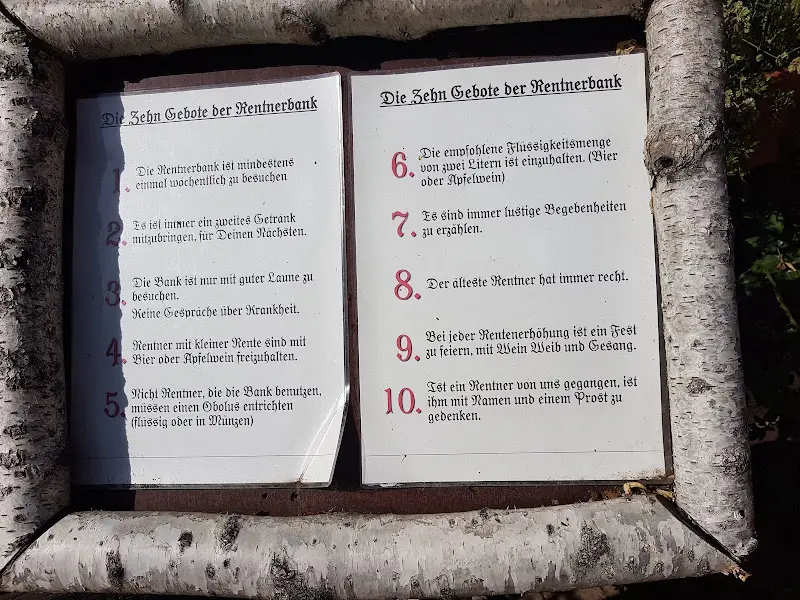 Die Zehn Gebote der Rentnerbank
1. Die Rentnerbank ist mindestens
einmal wöchentlich zu besuchen
2. Es ist immer ein zweites Getränk
mitzubringen, für Deinen Nächsten.
3. Die Bank ist nur mit guter Laune zu
besuchen.
Keine Gespräche über Krankheit.
4. Rentner mit kleiner Rente sind mit
Bier oder Apfelwein freizuhalten.
5. Nicht Rentner, die die Bank benutzen,
müssen einen Obolus entrichten
(flüssig oder in Münzen)
Die Zehn Gebote der Rentnerbank
6. Die empfohlene Flüssigkeitsmenge
von zwei Litern ist einzuhalten. (Bier
oder Apfelwein)
7. Es sind immer lustige Begebenheiten
zu erzählen.
8. Der älteste Rentner hat immer recht.
9. Bei jeder Rentenerhöhung ist ein Fest
zu feiern, mit Wein Weib und Gesang.
10. Ist ein Rentner von uns gegangen, ist
ihm mit Namen und einem Prost zu
gedenken.